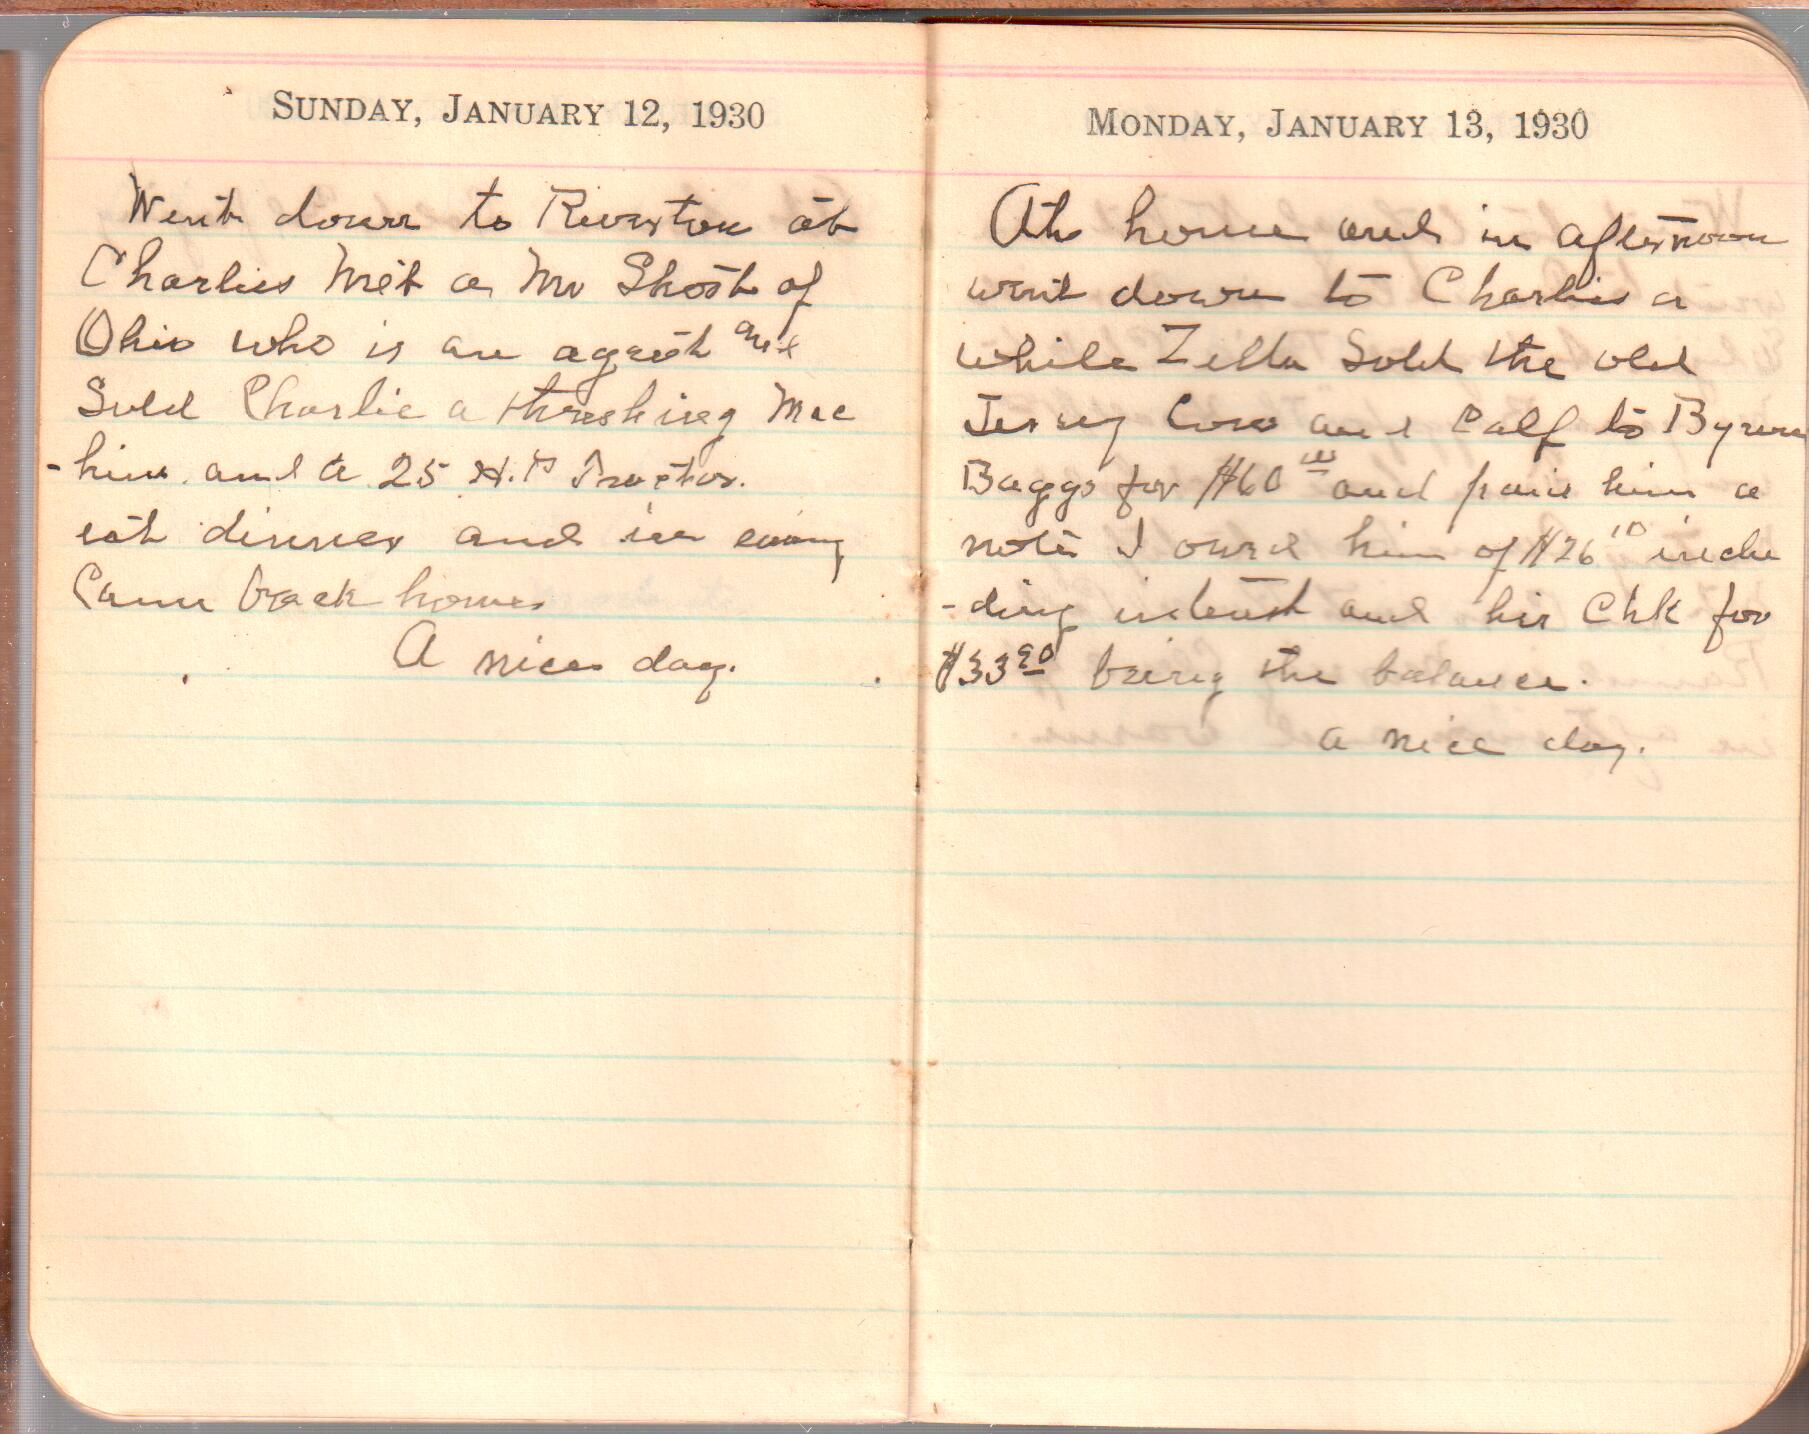 SUNDAY, JANUARY 12, 1930
Went down to Riverton at
Charlies Met a Mr Shost of
Ohio who is an agent and
Sold Charlie a threshing Mac
-hine and a 25 H.P Tractor.
eat dinner and in evening
Came back home
A nice day.
MONDAY, JANUARY 13, 1930
At home and in afternoon
went down to Charlies a
while Zella Sold the old
Jersey Cow and Calf to Byron
Baggs for $60 00 and paid him a
note I owed him of $26 10 inclu
-ding interest and his Chk for
$33 90 being the balance.
a nice day.